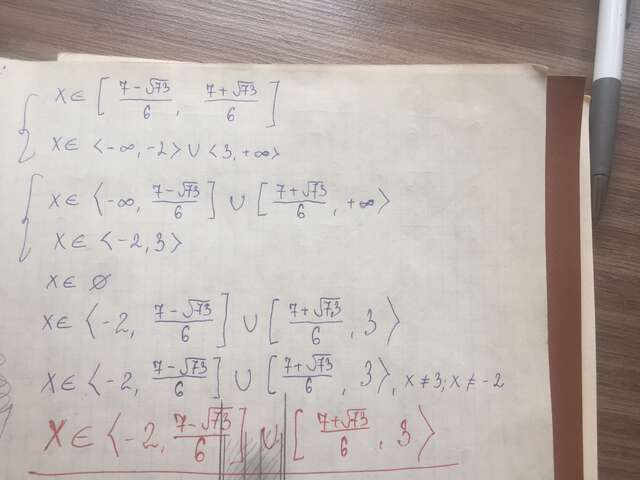 { x ∈ [ (7-√73)/6 , (7+√73)/6 ]
x ∈ <-∞, -2> ∪ <3, +∞>
{ x ∈ <-∞, (7-√73)/6 ] ∪ [ (7+√73)/6 , +∞>
x ∈ <-2, 3>
x ∈ ∅
x ∈ <-2, (7-√73)/6 ] ∪ [ (7+√73)/6 , 3>
x ∈ <-2, (7-√73)/6 ] ∪ [ (7+√73)/6 , 3>, x ≠ 3; x ≠ -2
x ∈ <-2, (7-√73)/6 ] ∪ [ (7+√73)/6 , 3>